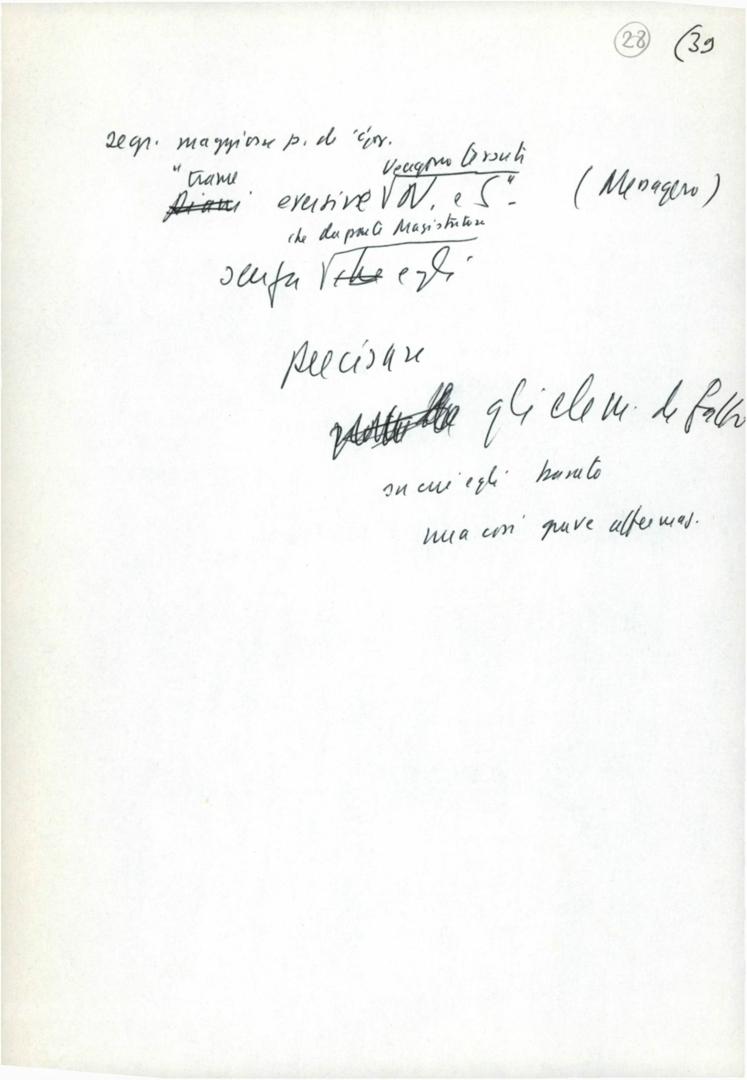 28 (39
segr. maggiore p. di gov.
vengono
"trame
Piani eversive √ N. e S". (Messaggero)
che da parte Magistratura
senza √ che egli
precisare
gli elem. di fatto
su cui egli basato
una così grave affermaz.